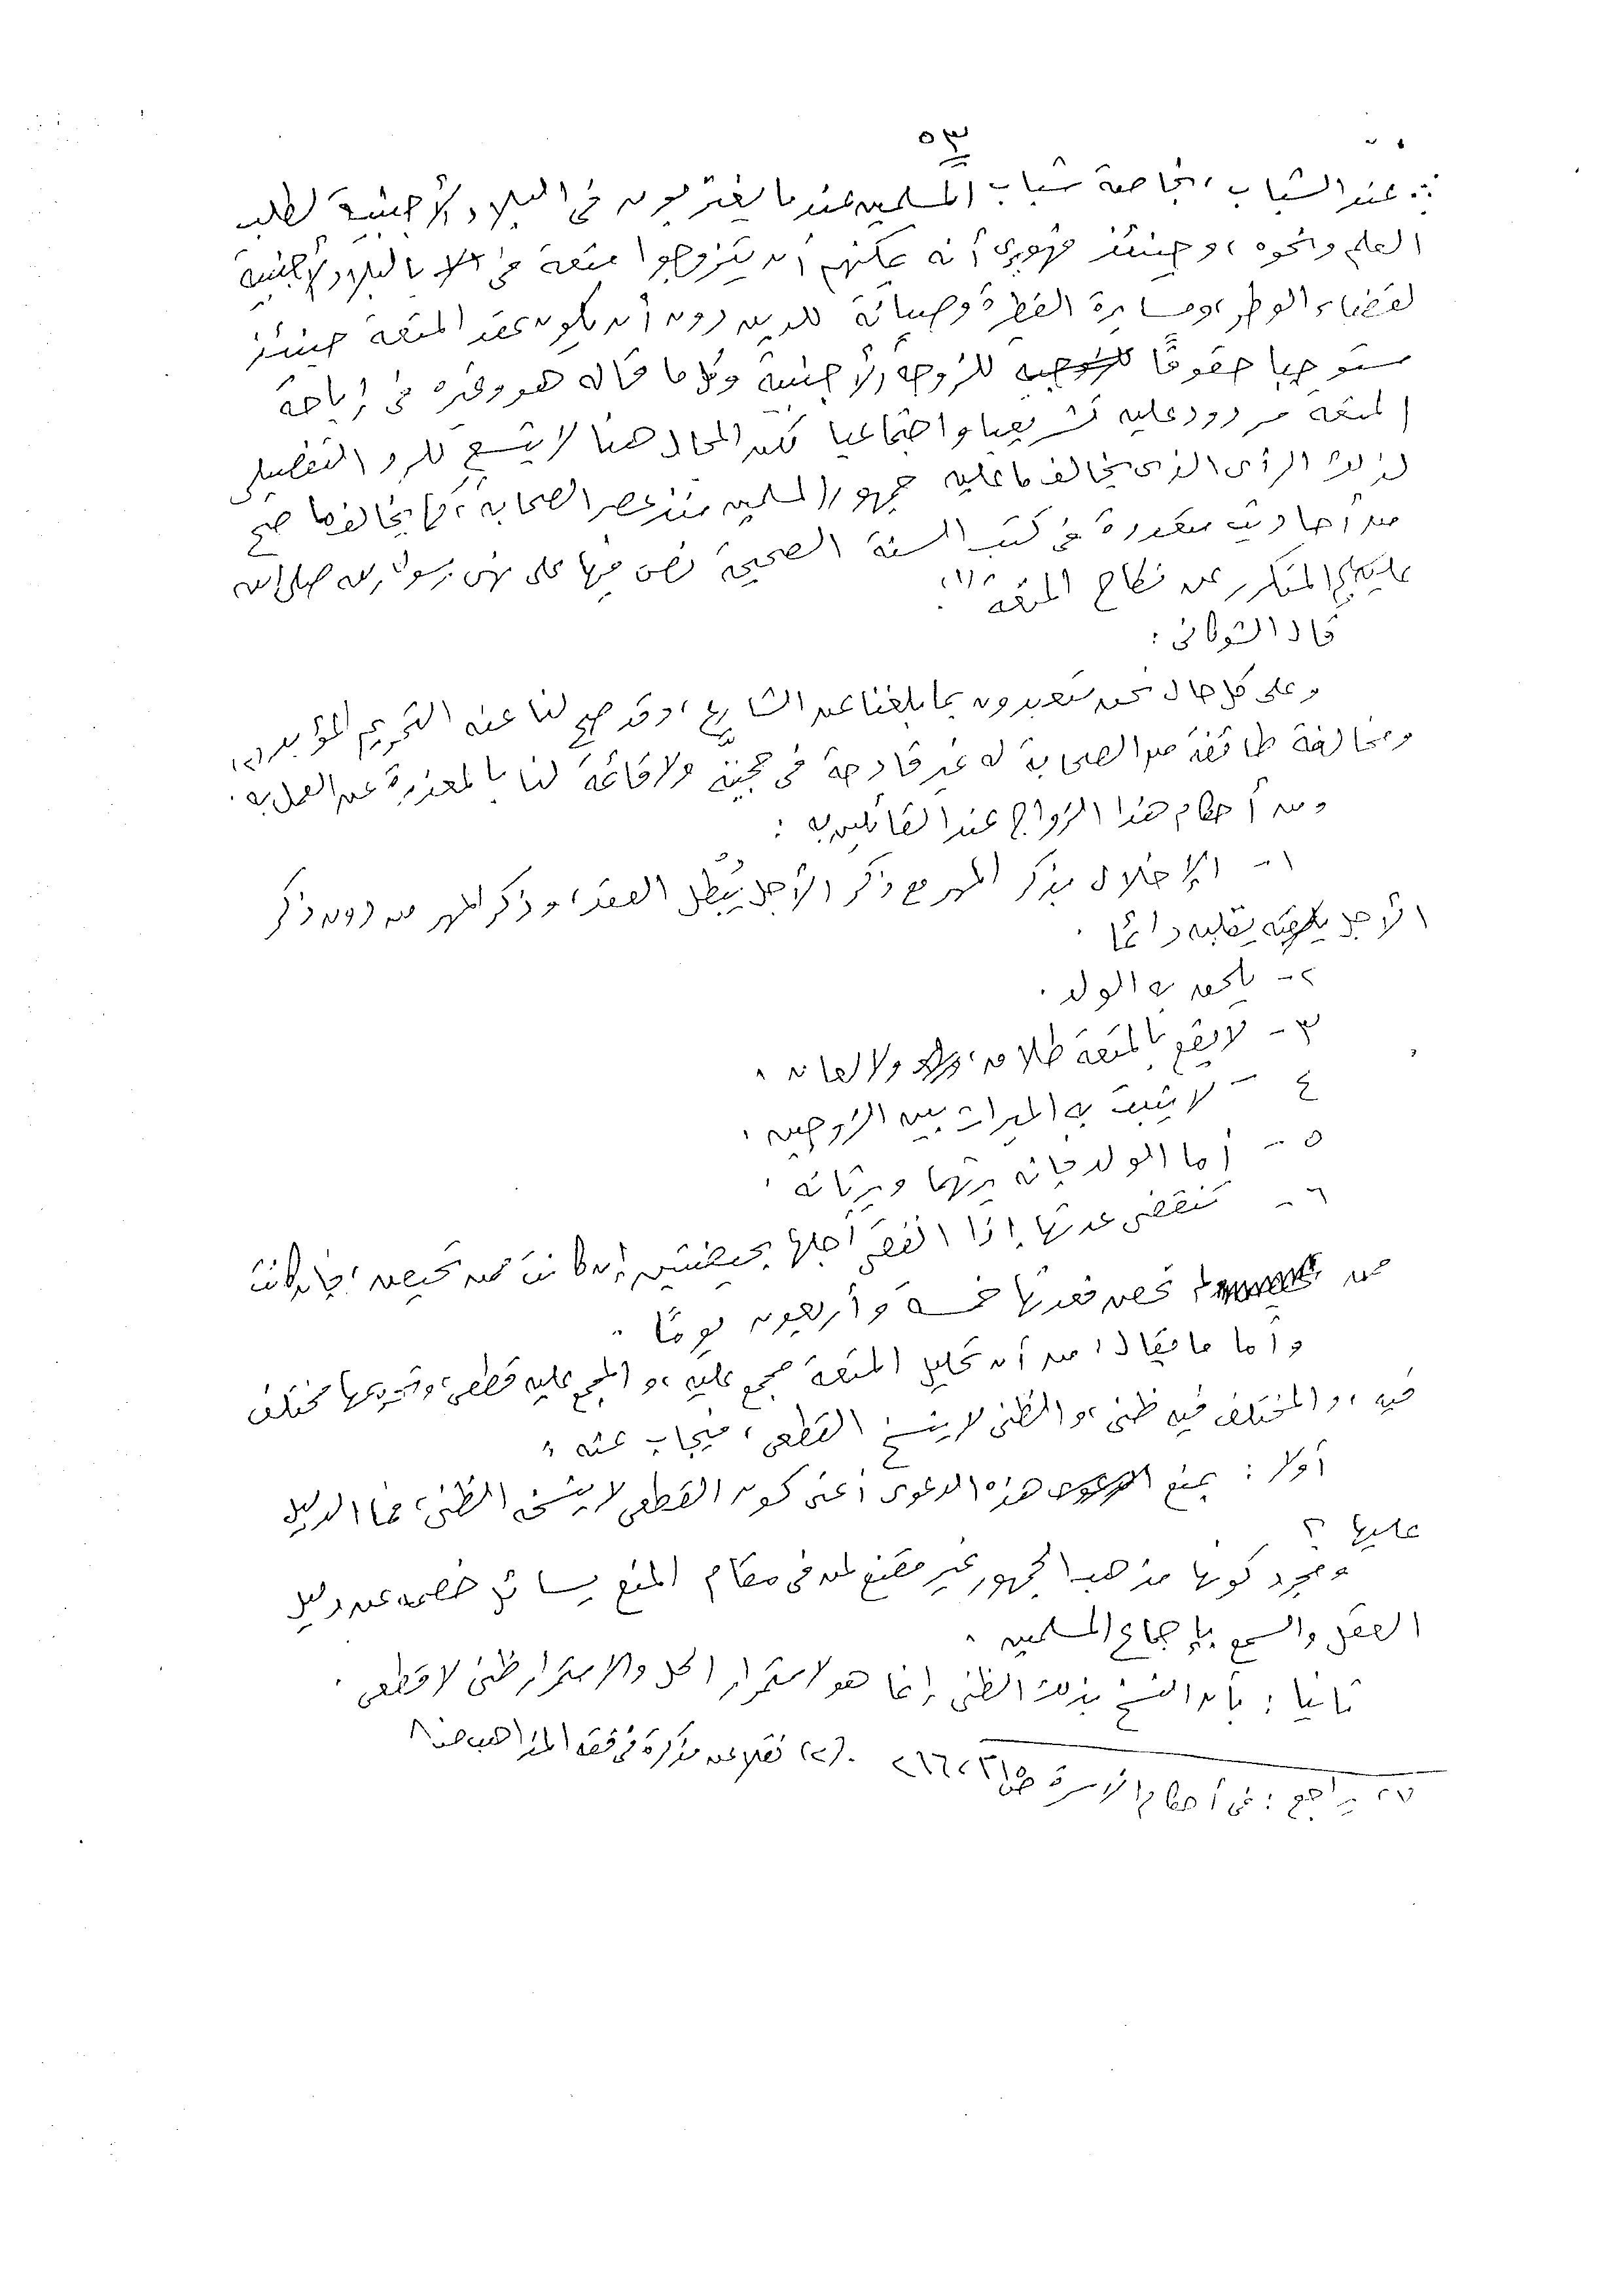 ٥٣
عند الشباب، بخاصة شباب المسلمين عندما يغتربون في البلاد الأجنبية لطلب
العلم ونحوه، وحينئذ فهو يرى أنه يمكنهم أن يتزوجوا متعة في بالبلاد الأجنبية
لقضاء الوطر، ومسايرة الفطرة وصيانة للدين دون أن يكون عقد المتعة حينئذ
مستوجبا حقوقًا للزوجة الأجنبية وكل ما قاله هو وغيره في إباحة
المتعة مردود عليه تشريعيا واجتماعيا لكن المجال هنا لا يتسع للرد التفصيلي
لذلك الرأى الذى يخالف ما عليه جمهور المسلمين منذ عصر الصحابة، كما يخالف ما صح
من أحاديث متعددة في كتب السنة الصحيحة نص فيها على نهى رسول الله صلى الله
عليه المتكرر عن نكاح المتعة (١).
قال الشوكانى :
وعلى كل حال نحن متعبدون بما بلغنا عن الشارع، وقد صح لنا عنه التحريم المؤبد (٢)
ومخالفة طائفة من الصحابة له غير قادحة فى حجيته ولا قائمة لنا بالمعذرة عن العمل به.
ومن أحكام هذا الزواج عند القائلين به :
١- الإخلال بذكر المهر مع ذكر الأجل يُبْطل العقد، وذكر المهر من دون ذكر
الأجل يقلبه دائما .
٢- يلحق به الولد .
٣- لا يقع بالمتعة طلاق، ولا لعان .
٤ - لا يثبت به الميراث بين الزوجين .
٥ - أما الولد فإنه يرثهما ويرثانه .
٦ - تنقضى عدتها إذا انقضى أجلها بحيضتين إن كانت ممن تحيض، فإن كانت
ممن لم تحض فعدتها خمسة وأربعون يومًا .
وأما ما يقال من أن تحليل المتعة مجمع عليه، والمجمع عليه قطعى، وتحريمها مختلف
فيه، والمختلف فيه ظنى، والظنى لا ينسخ القطعى، فيجاب عنه :
أولا : بمنع هذه الدعوى أعنى كون القطعى لا ينسخه الظنى، فما الدليل
عليها ؟
ومجرد كونها مذهب الجمهور غير مقنع لمن فى مقام المنع يسائل خصمه عن دليل
العقل والسمع بإجماع المسلمين .
ثانيا : بأن النسخ بذلك الظنى إنما هو لاستمرار الحل والاستمرار ظنى لا قطعى .
(١) يراجع : فى أحكام الأسرة ص ٢١٥، ٢١٦ . (٢) نقلا عن مذكرة فى فقه المذاهب صـ ٨